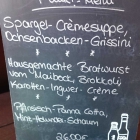 Menü
Spargel-Crèmesuppe,
Ochsenbacken-Grissini
Hausgemachte Bratwurst
vom Maibock, Brokkoli
Karotten-Ingwer-Crème
Pfirsich-Panna Cotta,
Schaum
26,00€